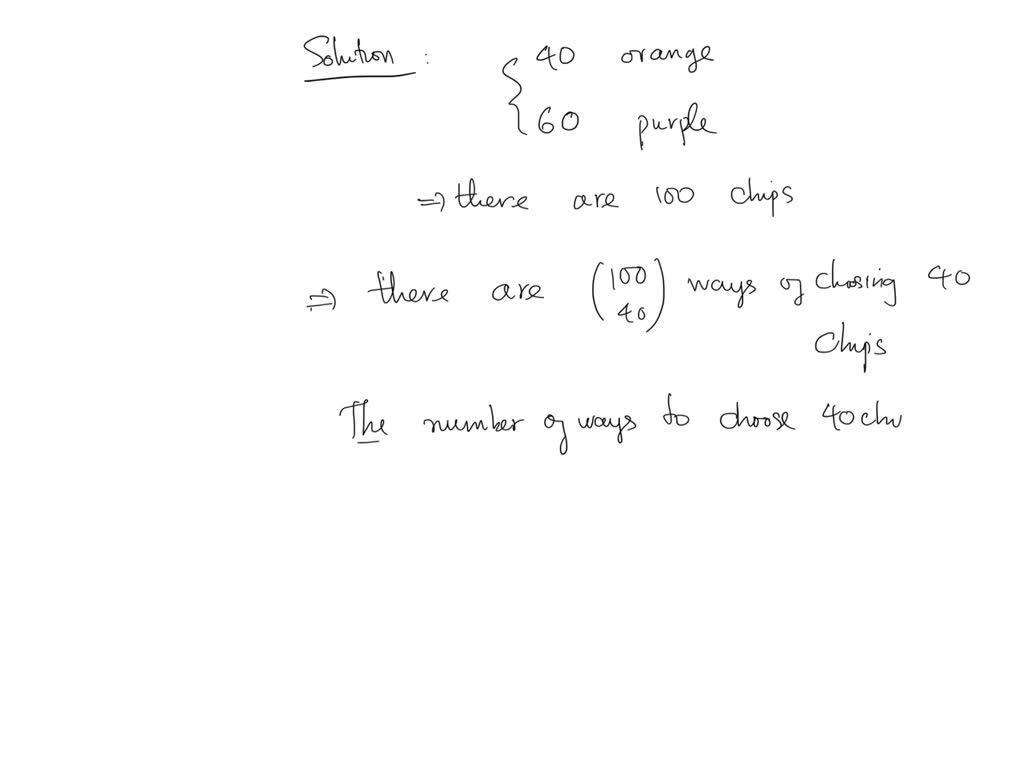 Solution : { 40 orange
60 purple
⇒ there are 100 chips
⇒ there are (100 40) ways of choosing 40
chips
The number of ways to choose 40 chi